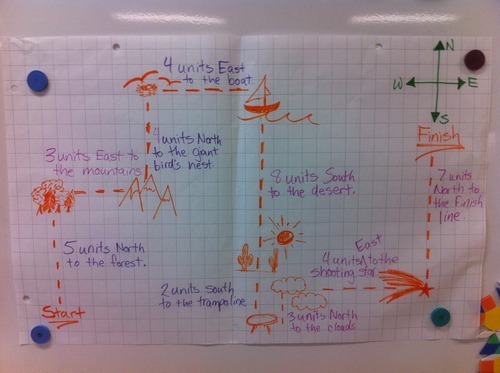 4 units East
to the boat
N
W
E
S
4 units North
to the giant
bird's nest.
Finish
3 units East to
the mountains
8 units South
to the desert.
7 units
North to
the Finish
line.
5 units North
to the forest.
East
4 units ^ to the
shooting star.
2 units south
to the trampoline
Start
3 units North
to the clouds